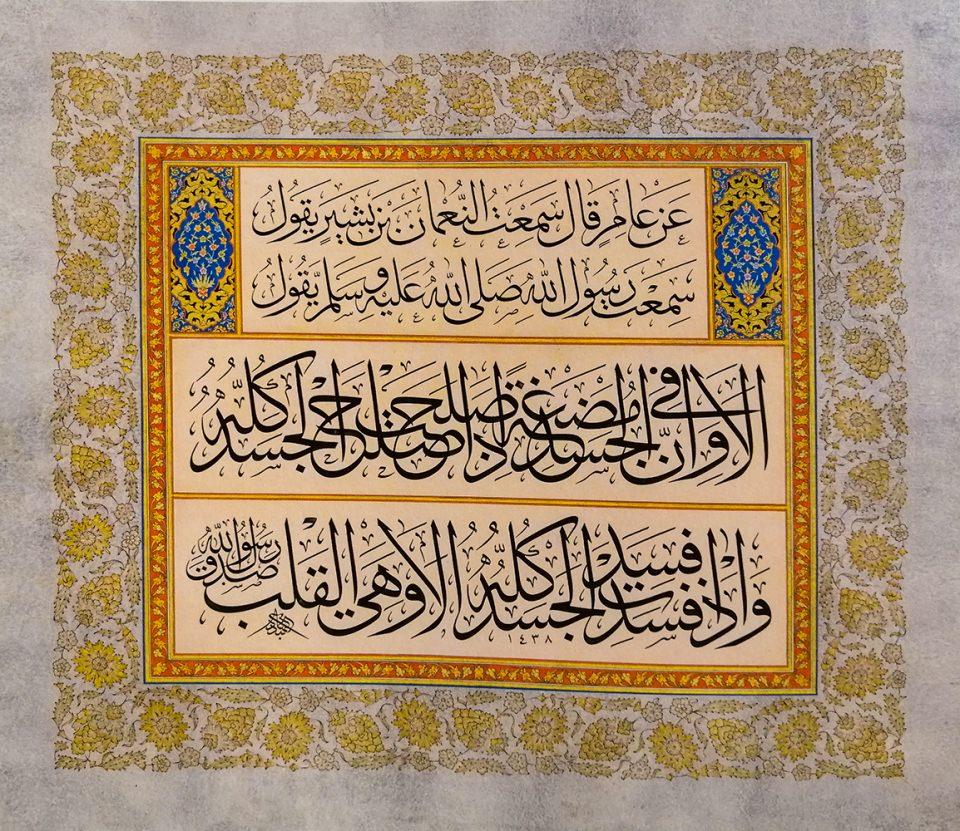 عَنْ عَامِرٍ قَالَ سَمِعْتُ النُّعْمَانَ بْنَ بَشِيرٍ يَقُولُ
سَمِعْتُ رَسُولَ اللهِ صَلَى اللهُ عَلَيْهِ وَسَلَّمَ يَقُولُ
الَا وَاِنَّ فِي الْجَسَدِ مُضْغَةً اِذَا صَلَحَتْ صَلَحَ الْجَسَدُ كُلُّهُ
وَاِذَا فَسَدَتْ فَسَدَ الْجَسَدُ كُلُّهُ الَا وَهِيَ الْقَلْبُ صَدَقَ رَسُولُ اللهِ
١٤٣٨